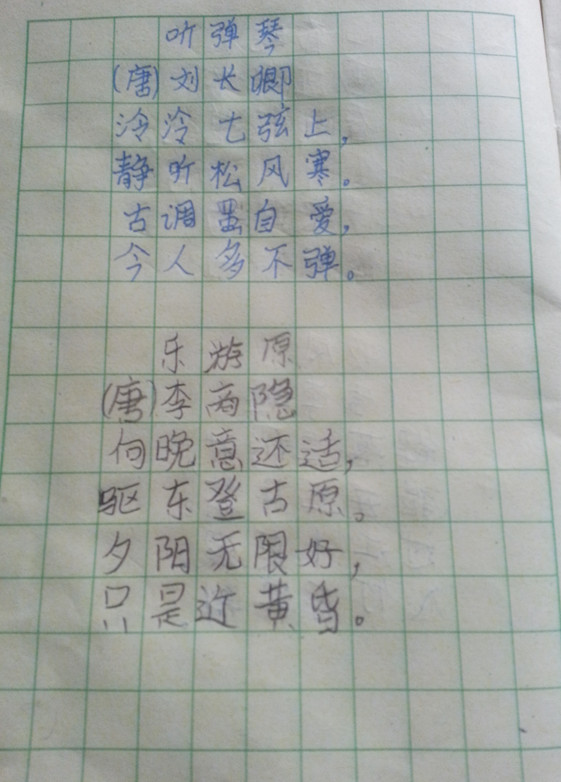 听弹琴
(唐)刘长卿
泠泠七弦上，
静听松风寒。
古调虽自爱，
今人多不弹。
乐游原
(唐)李商隐
向晚意还适，
驱东登古原。
夕阳无限好，
只是近黄昏。